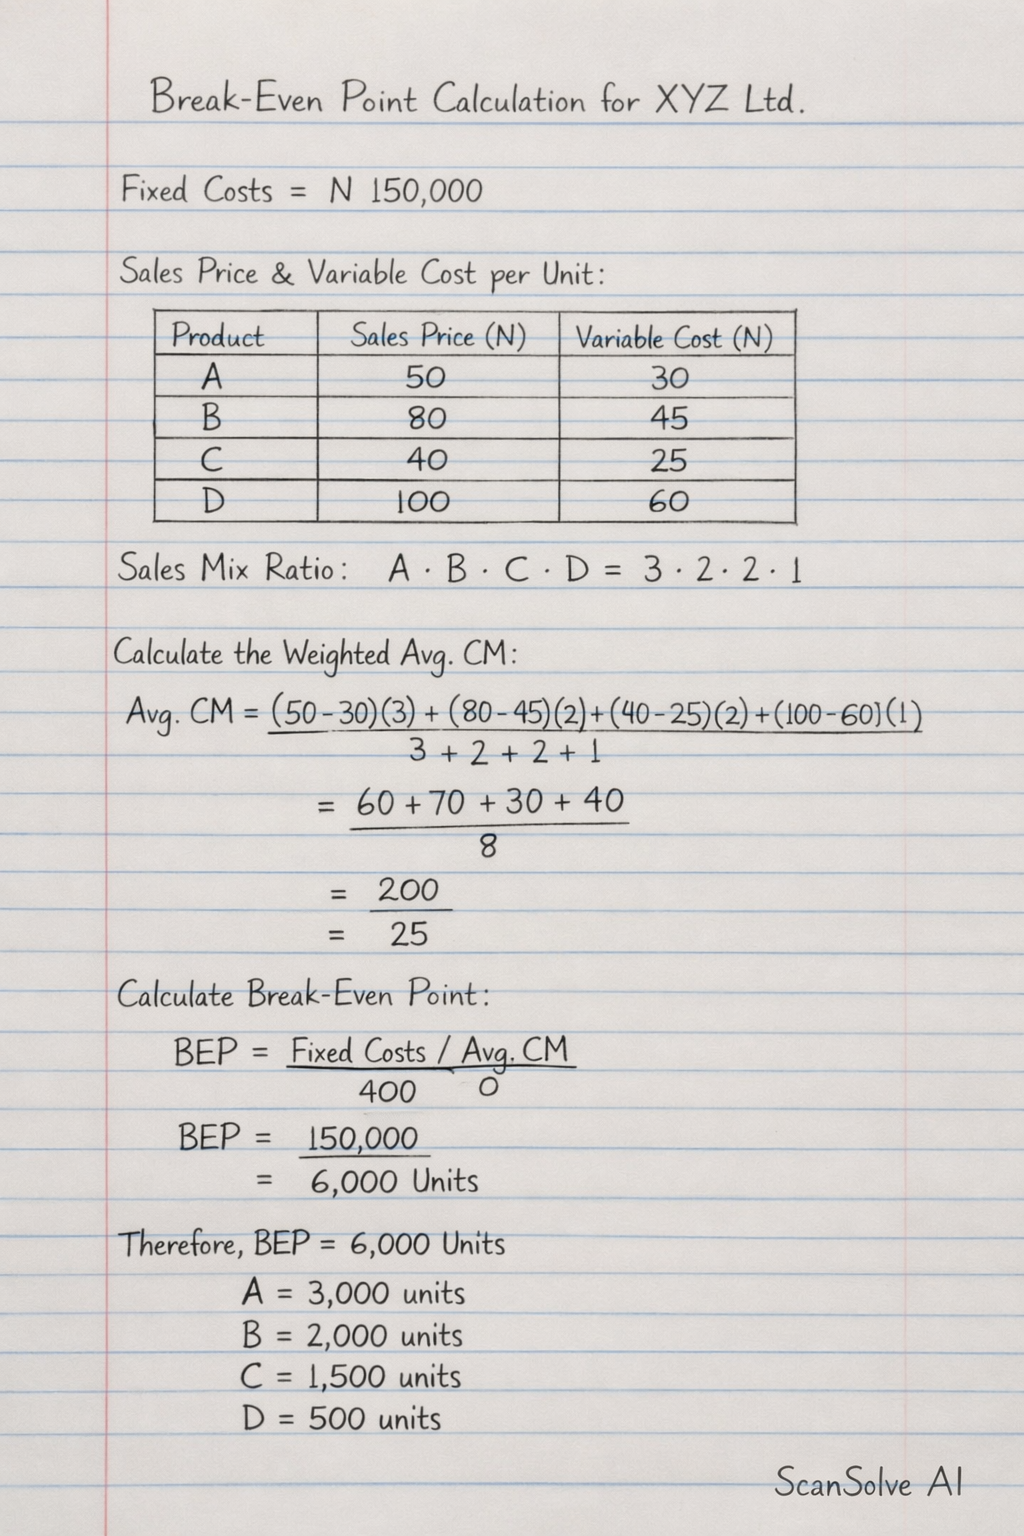 Break-Even Point Calculation for XYZ Ltd.
Fixed Costs = N 150,000
Sales Price & Variable Cost per Unit:
Product Sales Price (N) Variable Cost (N)
A 50 30
B 80 45
C 40 25
D 100 60
Sales Mix Ratio: A · B · C · D = 3 · 2 · 2 · 1
Calculate the Weighted Avg. CM:
Avg. CM = (50-30)(3) + (80-45)(2)+(40-25)(2)+(100-60)(1)
3 + 2 + 2 + 1
= 60 + 70 + 30 + 40
8
= 200
= 25
Calculate Break-Even Point:
BEP = Fixed Costs / Avg. CM
400 0
BEP = 150,000
= 6,000 Units
Therefore, BEP = 6,000 Units
A = 3,000 units
B = 2,000 units
C = 1,500 units
D = 500 units
ScanSolve AI